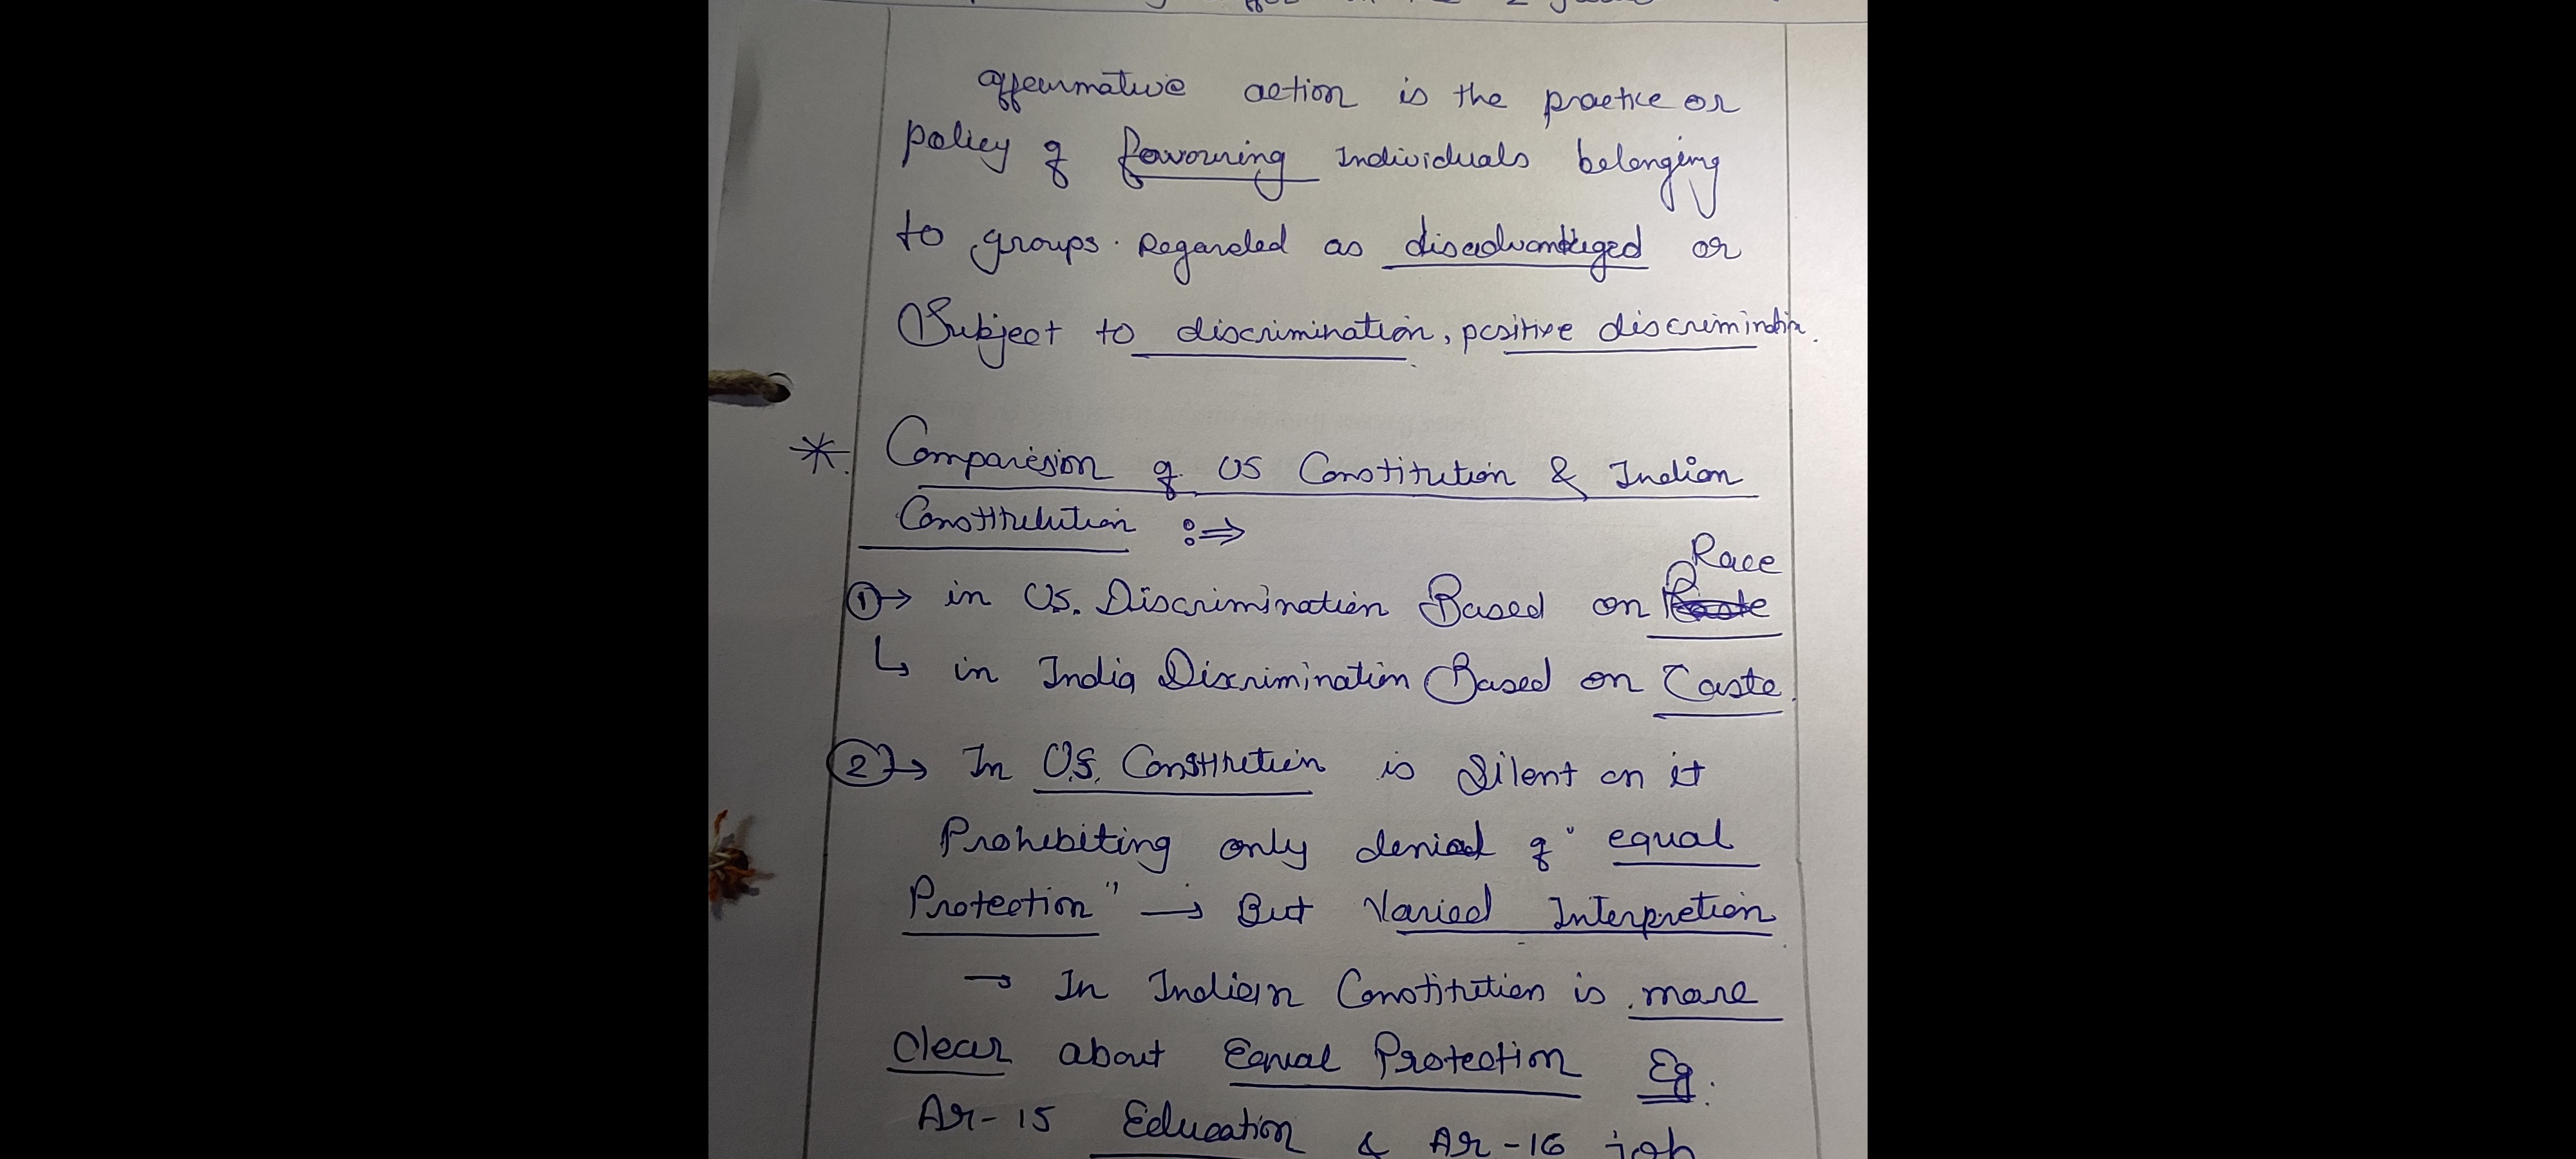 affeurmative action is the practice or
policy of favouring individuals belonging
to groups. Regarded as disadvantaged or
Subject to discrimination, positive discrimination.
*. Comparision of US Constitution & Indian
Constitution :⇒
Race
① → in U.S. Discrimination Based on
↳ in India Discrimination Based on Caste.
② → In U.S. Constitution is Silent on it
Prohibiting only denial of "equal
Protection" → But Varied Interpretion
→ In Indian Constitution is more
Clear about Equal Protection Eg.
Ar-15 Education & Ar-16 job